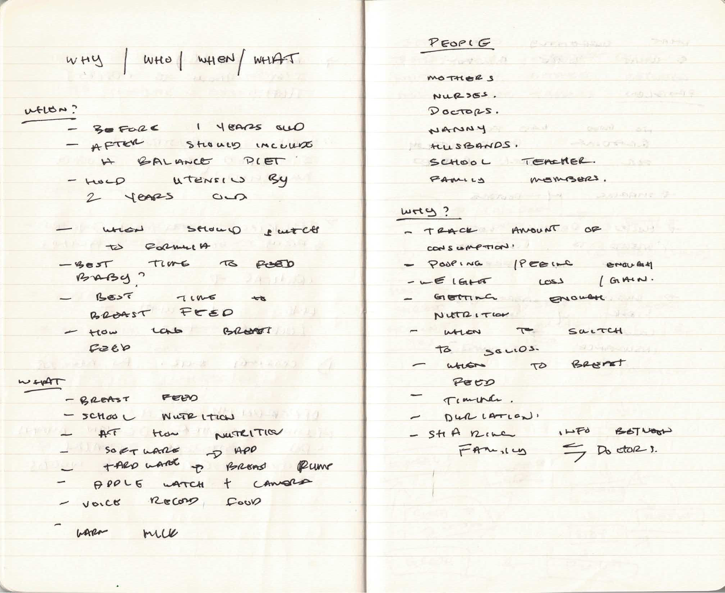 WHY / WHO / WHEN / WHAT
WHEN?
- BEFORE 1 YEARS OLD
- AFTER SHOULD INCLUDE
A BALANCE DIET
- HOLD UTENSILS BY
2 YEARS OLD
- WHEN SHOULD SWITCH
TO FORMULA
- BEST TIME TO FEED
BABY?
- BEST TIME TO
BREAST FEED
- HOW LONG BREAST
FEED
WHAT
- BREAST FEED
- SCHOOL NUTRITION
- AT HOM NUTRITION
- SOFTWARE → APP
- HARDWARE → BREAST PUMP
- APPLE WATCH + CAMERA
- VOICE RECORD FOOD
-
WARM MILK
PEOPLE
MOTHERS
NURSES.
DOCTORS.
NANNY
HUSBANDS.
SCHOOL TEACHER.
FAMILY MEMBERS.
WHY?
- TRACK AMOUNT OF
CONSUMPTION.
- POOPING / PEEING ENOUGH
- WEIGHT LOSS / GAIN.
- GETTING ENOUGH
NUTRITION
- WHEN TO SWITCH
TO SOLIDS.
- WHEN TO BREAST
FEED
- TIMING.
- DURIATION.
- SHARING INFO BETWEEN
FAMILY ⇆ DOCTORS.